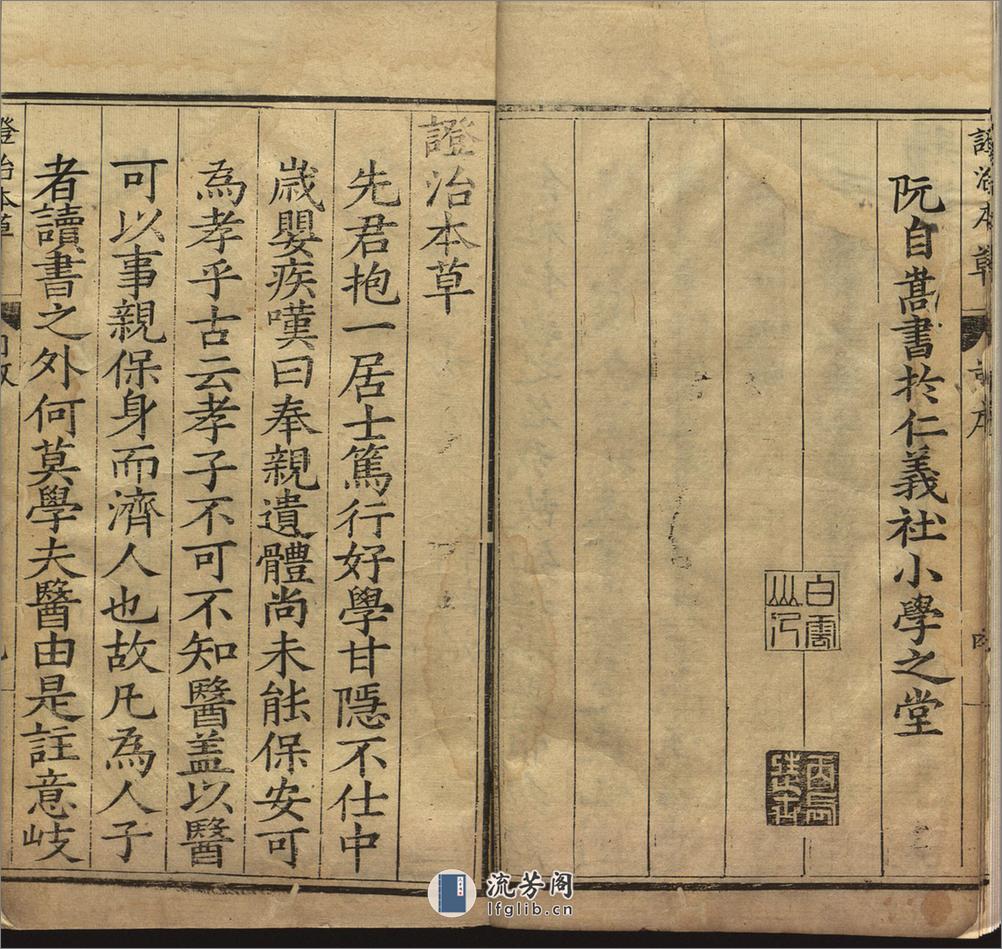 證治本草一
阮自嵩書扵仁義社小學之堂
白雲山
丙辰進士
證治本草
先君抱一居士篤行好學甘隱不仕中
歳嬰疾嘆曰奉親遺體尚未能保安可
為孝乎古云孝子不可不知醫盖以醫
可以事親保身而濟人也故凡為人子
者讀書之外何莫學夫醫由是註意岐
證治本草
流芳阁
lfglib.cn